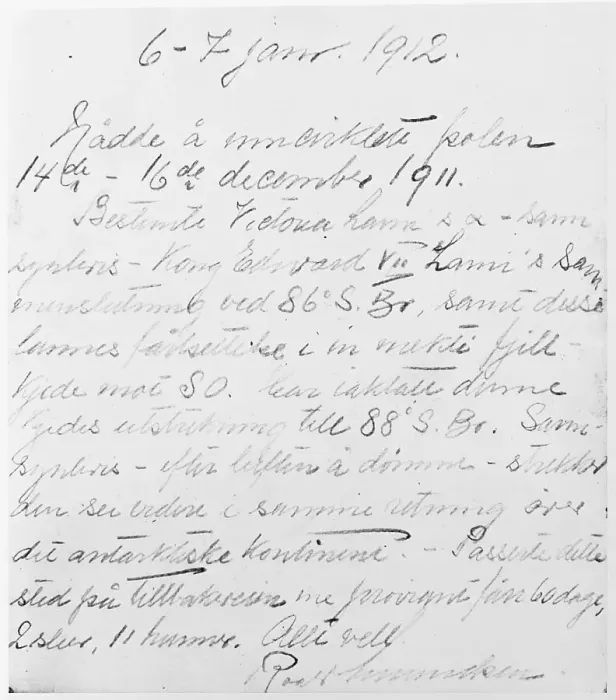 6-7 janr. 1912.
Nådde å umcirklete polen
14de - 16de december 1911.
Bestemte Victoria Lann's & - sann
synlivis - Kong Edward VII Lann's Sam
menslutning ved 86° S. Br, samt disse
lannes fårtsettelse i in mekti fjill-
kjede mot SO. Har iaktatt dinne
kjedes utstrekning till 88° S. Br. Sann-
synlivis - efter luften å dømme - strekker
den sei videre i samme retning åver
det antarktiske kontinent. - Passerte dette
sted på tillbakereisen me proviant får 60 dage,
2 sleer, 11 hunner. Alle vell.
Roald Amundsen.